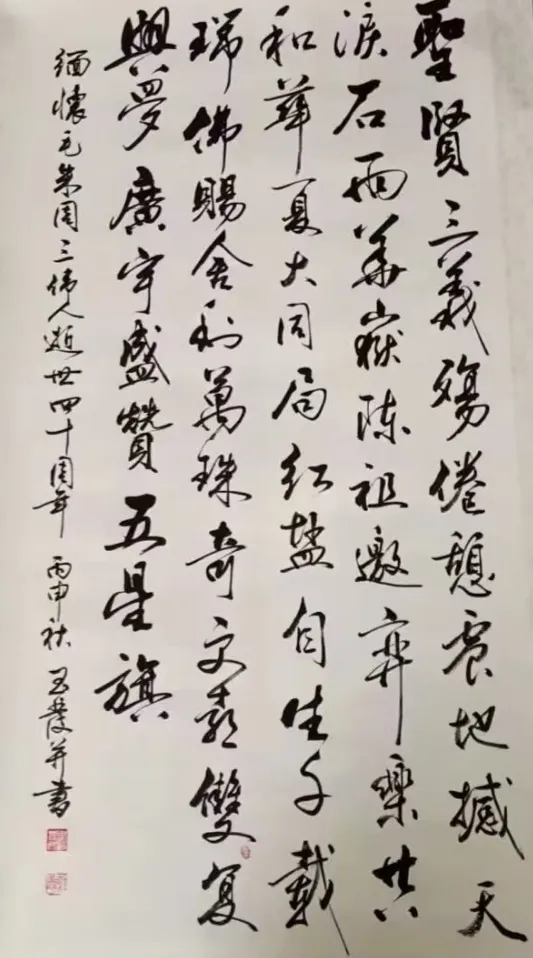 聖賢三義殤倦憩震地撼天
淚石雨華嶽陈祖邀弈樂共
和華夏大同局红盐自生千載
瑞佛賜舍利萬珠奇文彩雙复
興夢廣宇盛贊五星旗
缅懷毛朱周三偉人逝世四十周年 丙申秋 发并書